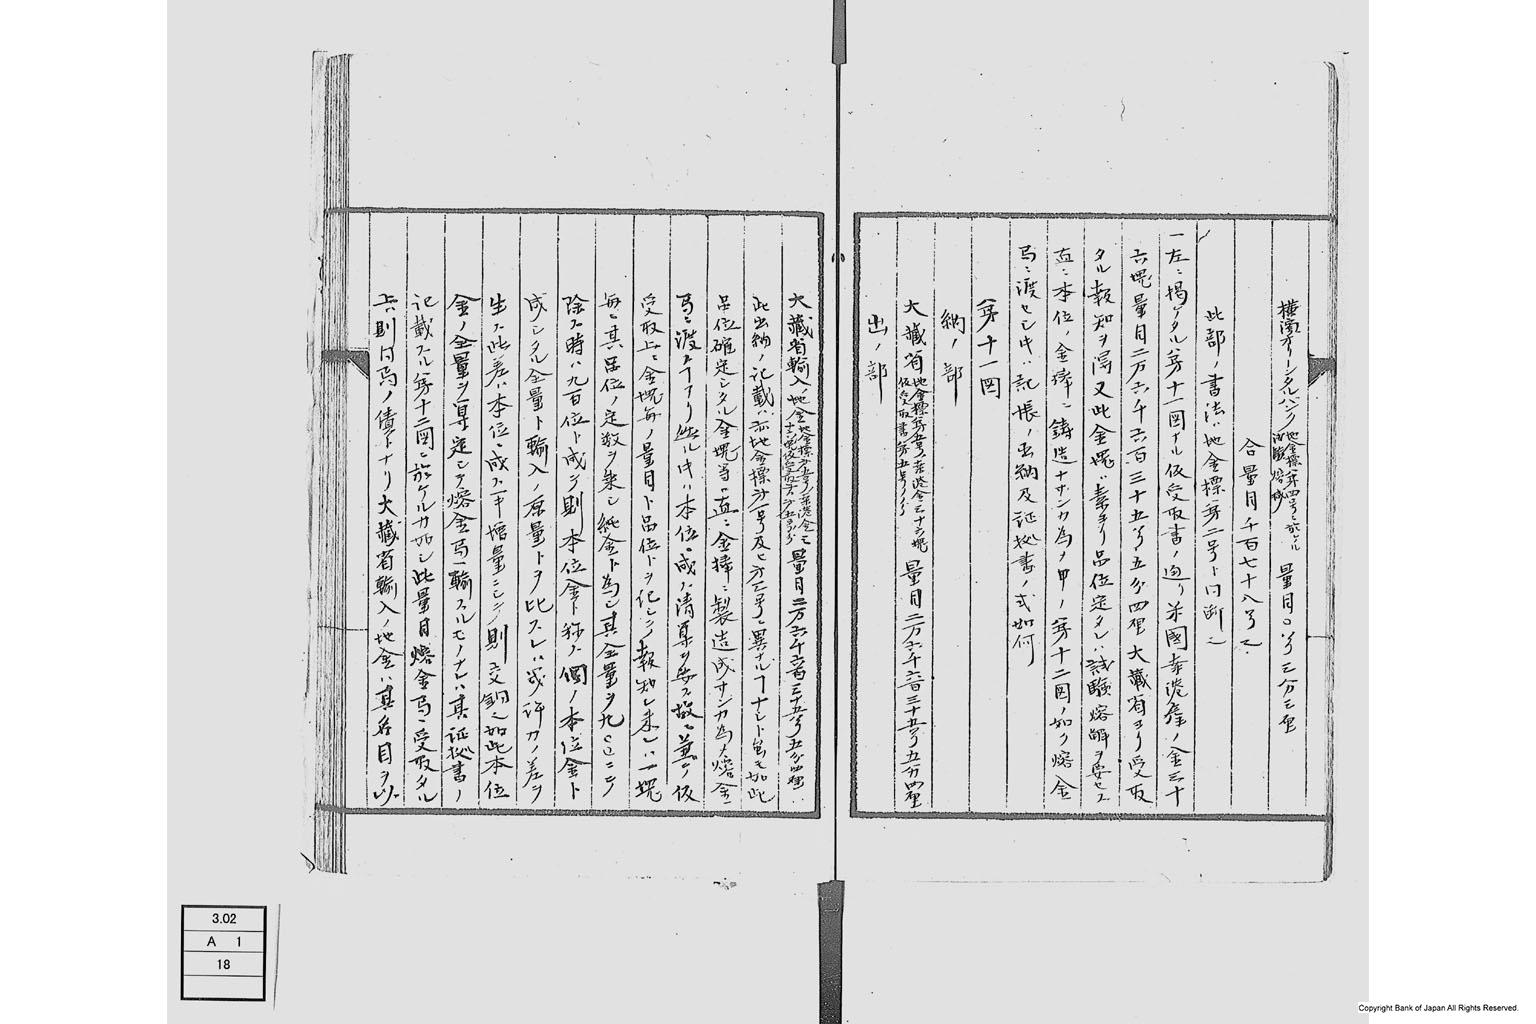 横濱オリーンタルバンク地金標第四号ニ於ケル 量目〇匁三分三厘
合量目千百七十八匁
此部ノ書法ハ地金標第二号ト同断
一左ニ掲ケタル第十一図ナル仮受取書ノ通リ米國 金三十
六塊量目二万六千六百三十五匁五分四厘大蔵省ヨリ受取
タル報知ヲ得又此金塊ハ素ヨリ品位定タレハ試験熔解ヲ要セス
直ニ本位ノ金棒ニ鋳造ナサンカ為メ甲ノ第十二図ノ如ク熔金
局ニ渡セシ时ハ記帳ノ出納及証拠書ノ式如何
第十一図
納ノ部
大蔵省 地金標第五号 金三十六塊 仮受取書第五号 量目二万六千六百三十五匁五分四厘
出ノ部
大蔵省輸入ノ地金 量目二万六千六百三十五匁五分四厘
此出納ノ記載ハ亦地金標第一号及ヒ第三号ニ異ナルヿナシト雖モ如此
品位確定シタル金塊等ハ直ニ金棒ニ製造成サンカ為メ熔金
局ニ渡スヿアリ然ル时ハ本位ニ成ス清算ヲ要ス故ニ兼テ仮
受取上ニ金塊毎ノ量目ト品位トヲ記シテ報知シ来レハ一塊
毎ニ其品位ノ定数ヲ乗シ純金ト為シ其全量ヲ九〇〇ニテ
除ス時ハ九百位ト成テ則本位金ト称ス個ノ本位金ト
成シタル全量ト輸入ノ原量トヲ比スレハ或許カノ差ヲ
生ス此差ハ本位ニ成スヰ増量ニシテ則交銅也如此本位
金ノ全量ヲ算定シテ熔金局ヘ輸スルモノナレハ其証拠書ノ
記載スル第十二図ニ於ケルカ如シ此量目熔金局ニ受取タル
上ハ則同局ノ債トナリ大蔵省輸入ノ地金ハ其名目ヲ以
3.02
A 1
18
Copyright Bank of Japan All Rights Reserved.